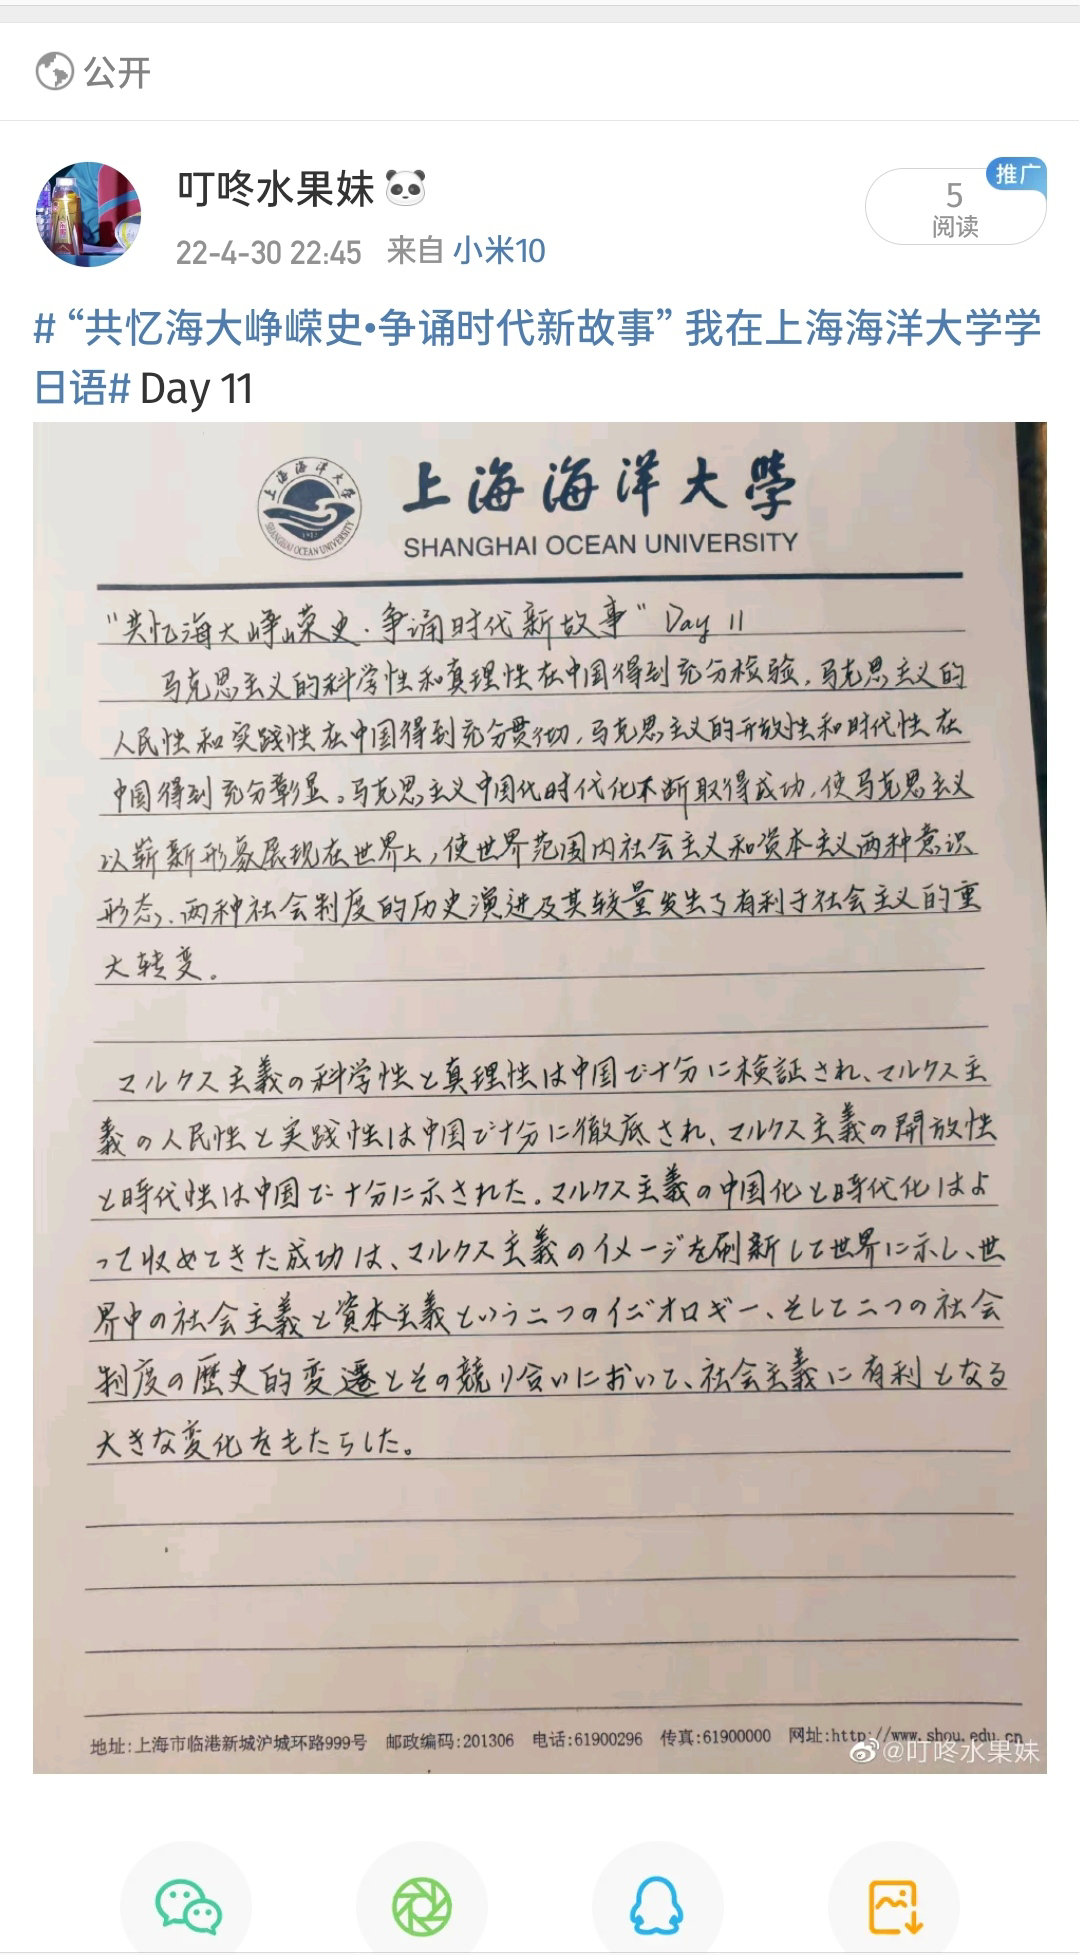 公开
叮咚水果妹🐼
22-4-30 22:45 来自 小米10
推广
5
阅读
#“共忆海大峥嵘史•争诵时代新故事”我在上海海洋大学学
日语# Day 11
上海海洋大学
SHANGHAI OCEAN UNIVERSITY
1912
上海海洋大學
SHANGHAI OCEAN UNIVERSITY
“共忆海大峥嵘史·争诵时代新故事” Day 11
马克思主义的科学性和真理性在中国得到充分检验，马克思主义的
人民性和实践性在中国得到充分贯彻，马克思主义的开放性和时代性在
中国得到充分彰显。马克思主义中国化时代化不断取得成功，使马克思主义
以崭新形象展现在世界上，使世界范围内社会主义和资本主义两种意识
形态、两种社会制度的历史演进及其较量发生了有利于社会主义的重
大转变。
マルクス主義の科学性と真理性は中国で十分に検証され、マルクス主
義の人民性と実践性は中国で十分に徹底され、マルクス主義の開放性
と時代性は中国で十分に示された。マルクス主義の中国化と時代化はよ
って収めてきた成功は、マルクス主義のイメージを刷新して世界に示し、世
界中の社会主義と資本主義という二つのイデオロギー、そして二つの社会
制度の歴史的変遷とその競り合いにおいて、社会主義に有利となる
大きな変化をもたらした。
地址:上海市临港新城沪城环路999号 邮政编码:201306 电话:61900296 传真:61900000 网址:http://www.shou.edu.cn
@叮咚水果妹